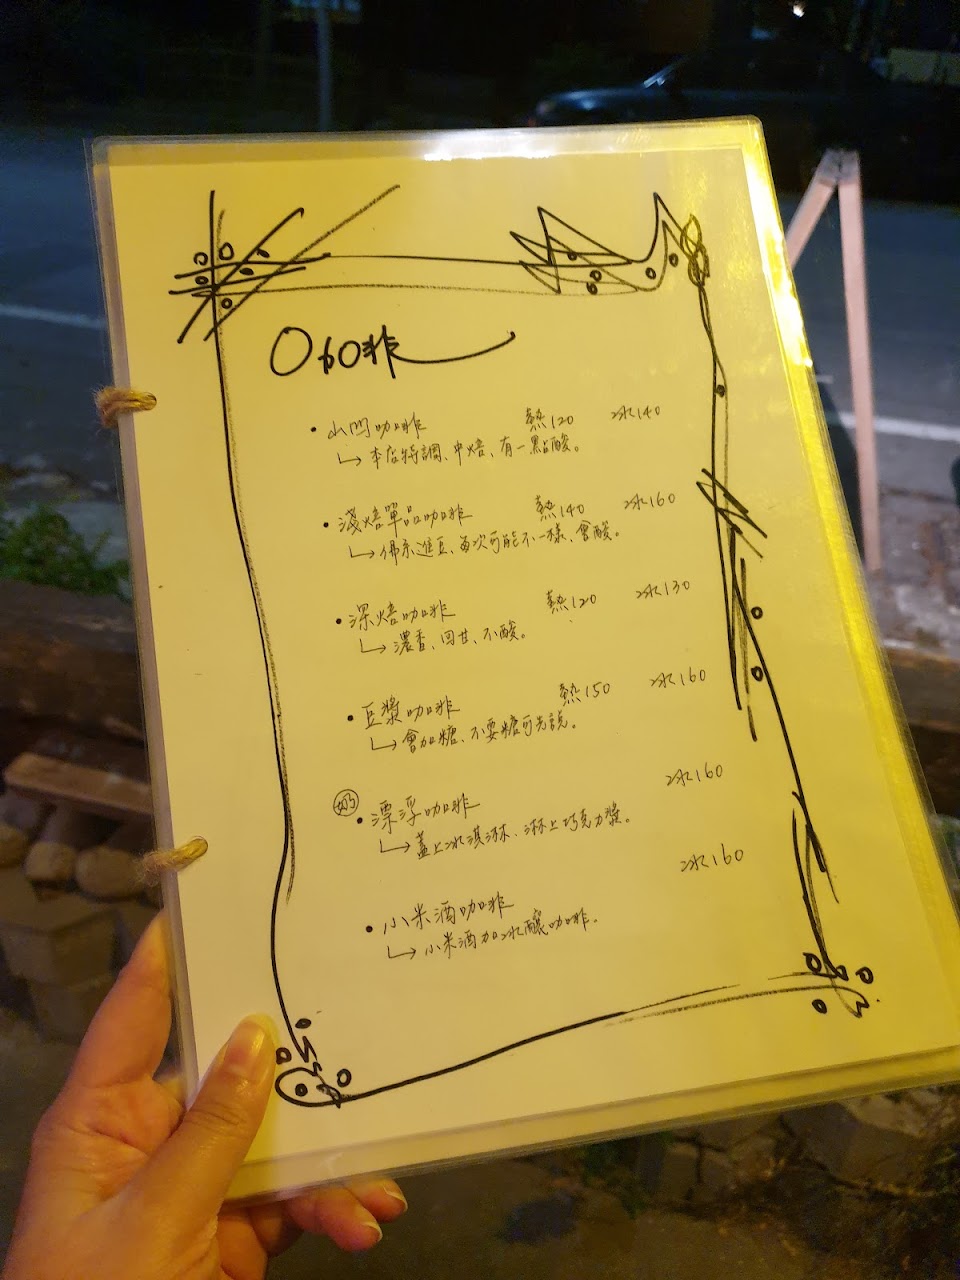 咖啡
• 山門咖啡 熱120 冰140
↳ 本店特調、中焙、有一點酸。
• 淺焙單品咖啡 熱140 冰160
↳ 佛系進豆、每次可能不一樣、會酸。
• 深焙咖啡 熱120 冰130
↳ 濃香、回甘、不酸。
• 豆漿咖啡 熱150 冰160
↳ 會加糖、不要糖可先說。
奶 • 漂浮咖啡 冰160
↳ 蓋上冰淇淋、淋上巧克力醬。
• 小米酒咖啡 冰160
↳ 小米酒加冰釀咖啡。